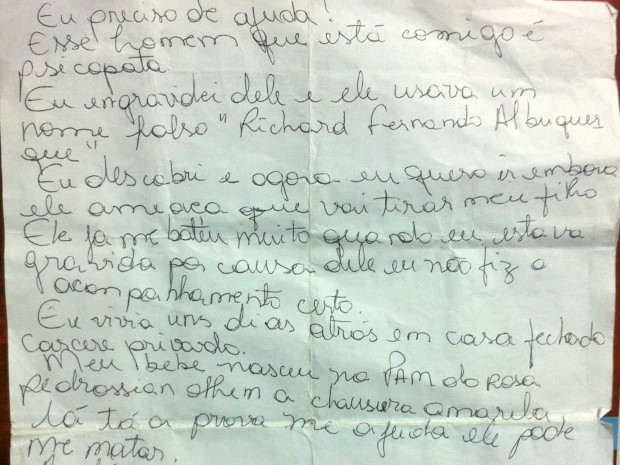 Eu preciso de ajuda!
Esse homem que está comigo é
psicopata.
Eu engravidei dele e ele usava um
nome falso "Richard Fernando Albuquer
que"
Eu descobri e agora eu quero ir embora
ele ameaça que vai tirar meu filho
Ele ja me bateu muito quando eu estava
gravida por causa dele eu não fiz o
acompanhamento certo.
Eu vivia uns dias atrás em casa fechado
carcere privardo.
Meu bebe nasceu no PAM do Rosa
Pedrossian olhem a amarela
lá tá a prova me ajuda ele pode
me matar.